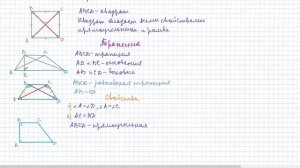 ABCD - квадрат
Квадрат обладает всеми свойствами
прямоугольника и ромба
Трапеция
ABCD - трапеция
AD и BC - основания
AB и CD - боковые
ABCD - равнобокая трапеция
AB = CD
Свойства
1) ∠A = ∠D, ∠B = ∠C
2) AC = BD
ABCD - прямоугольная